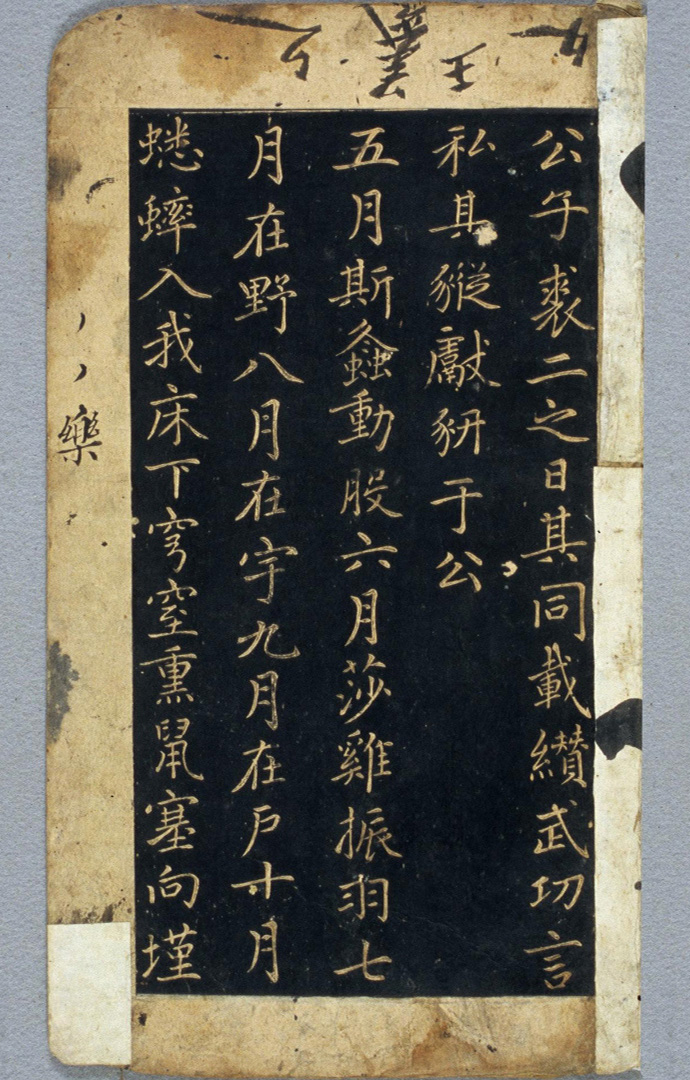 公子裘二之日其同載纘武功言
私其豵獻豜于公
五月斯螽動股六月莎雞振羽七
月在野八月在宇九月在戶十月
蟋蟀入我床下穹窒熏鼠塞向墐
樂